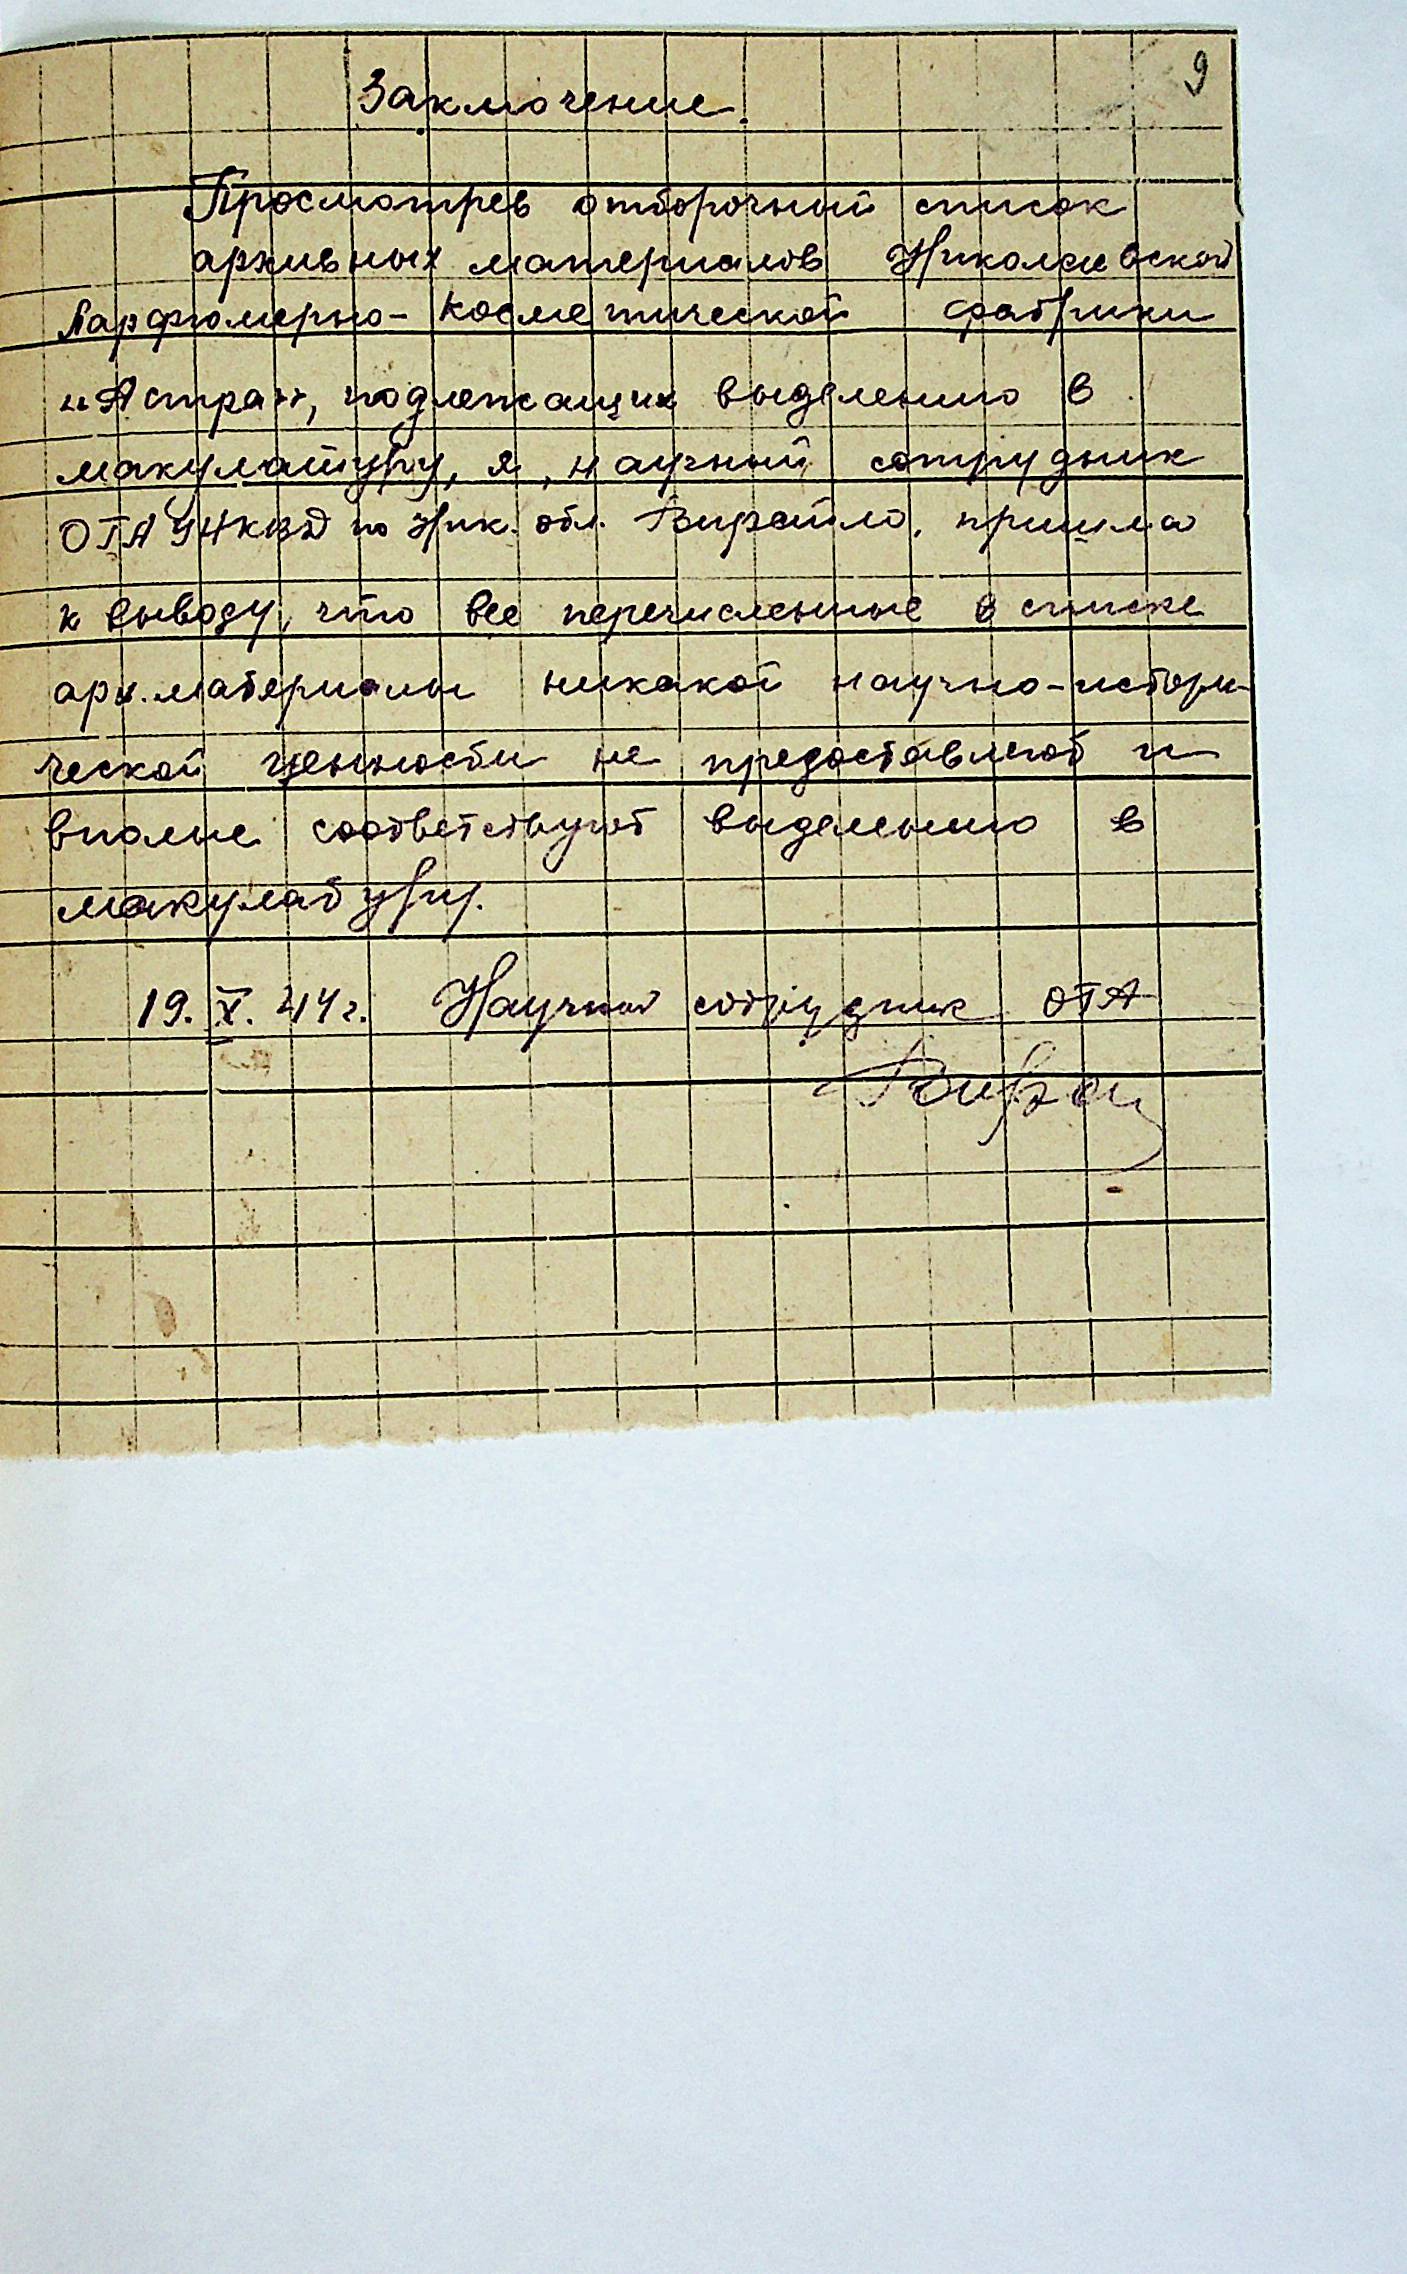 9
Заключение.
Просмотрев отборочный список
архивных материалов Николаевской
парфюмерно-косметической фабрики
"Астра", подлежащих выделению в
макулатуру, я, научный сотрудник
ОГА УНКВД по Ник. обл. пришла
к выводу, что все перечисленные в списке
арх. материалы никакой научно-истори-
ческой ценности не предоставляют и
вполне соответствуют выделению в
макулатуру.
19.X.44г. Научный сотрудник ОГА